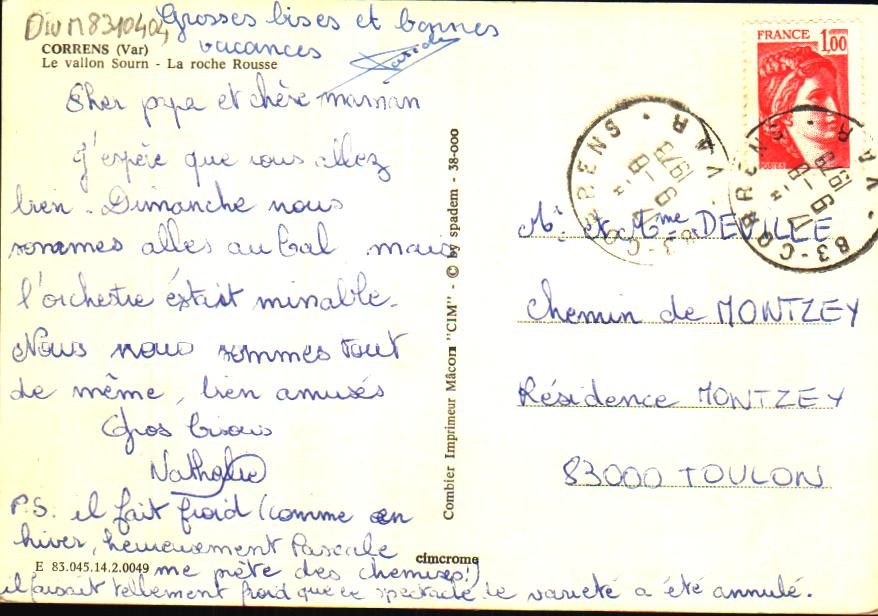 Grosses bises et bonnes
vacances
Pascale
CORRENS (Var)
Le vallon Sourn - La roche Rousse
Cher papa et chère maman
J'espère que vous allez
bien. Dimanche nous
sommes allés au bal mais
l'orchestre était minable.
Nous nous sommes tout
de même, bien amusés
Gros bisous
Nathalie
P.S. il fait froid (comme en
hiver, heureusement Pascale
me prête des chemises!)
il faisait tellement froid que ce spectacle de varieté a été annulé.
E 83.045.14.2.0049
cimcrome
Combier Imprimeur Mâcon "CIM" - © by spadem - 38-000
FRANCE 1,00
POSTES
83-CORRENS VAR
1979
83-CORRENS VAR
1979
Mr & Mme DEVILLE
Chemin de MONTZEY
Résidence MONTZEY
83000 TOULON